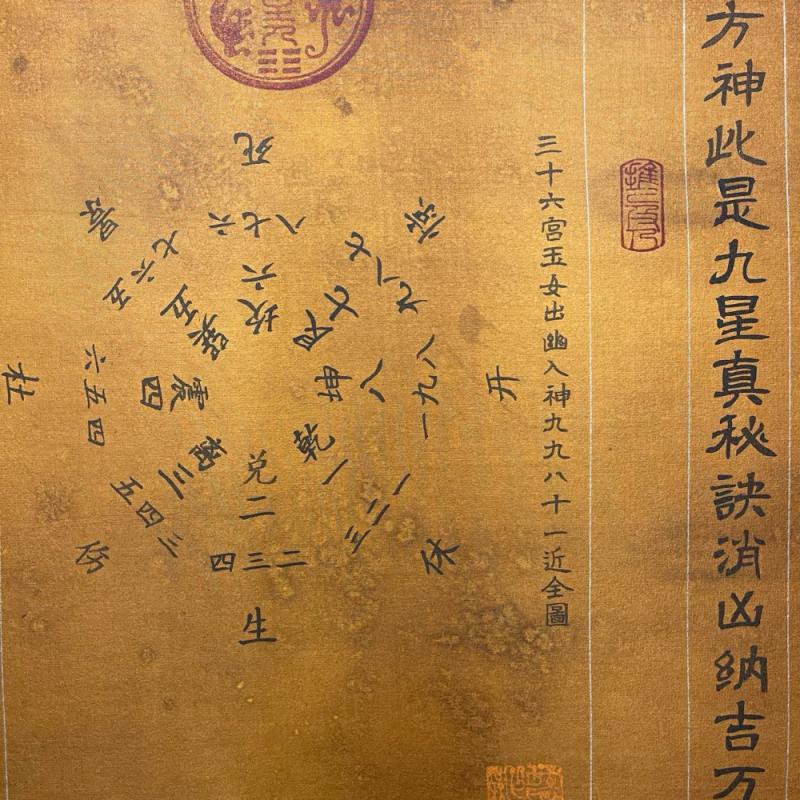 方神此是九星真秘訣消凶納吉万
三十六宮玉女出幽入神九九八十一近全圖
死
六七八
六
坎
景
五六七
五
巽
杜
四五六
四
震
三四五
三
生
二三四
二
兌
休
一二三
一
乾
开
八九一
八
坤
七八九
七
艮